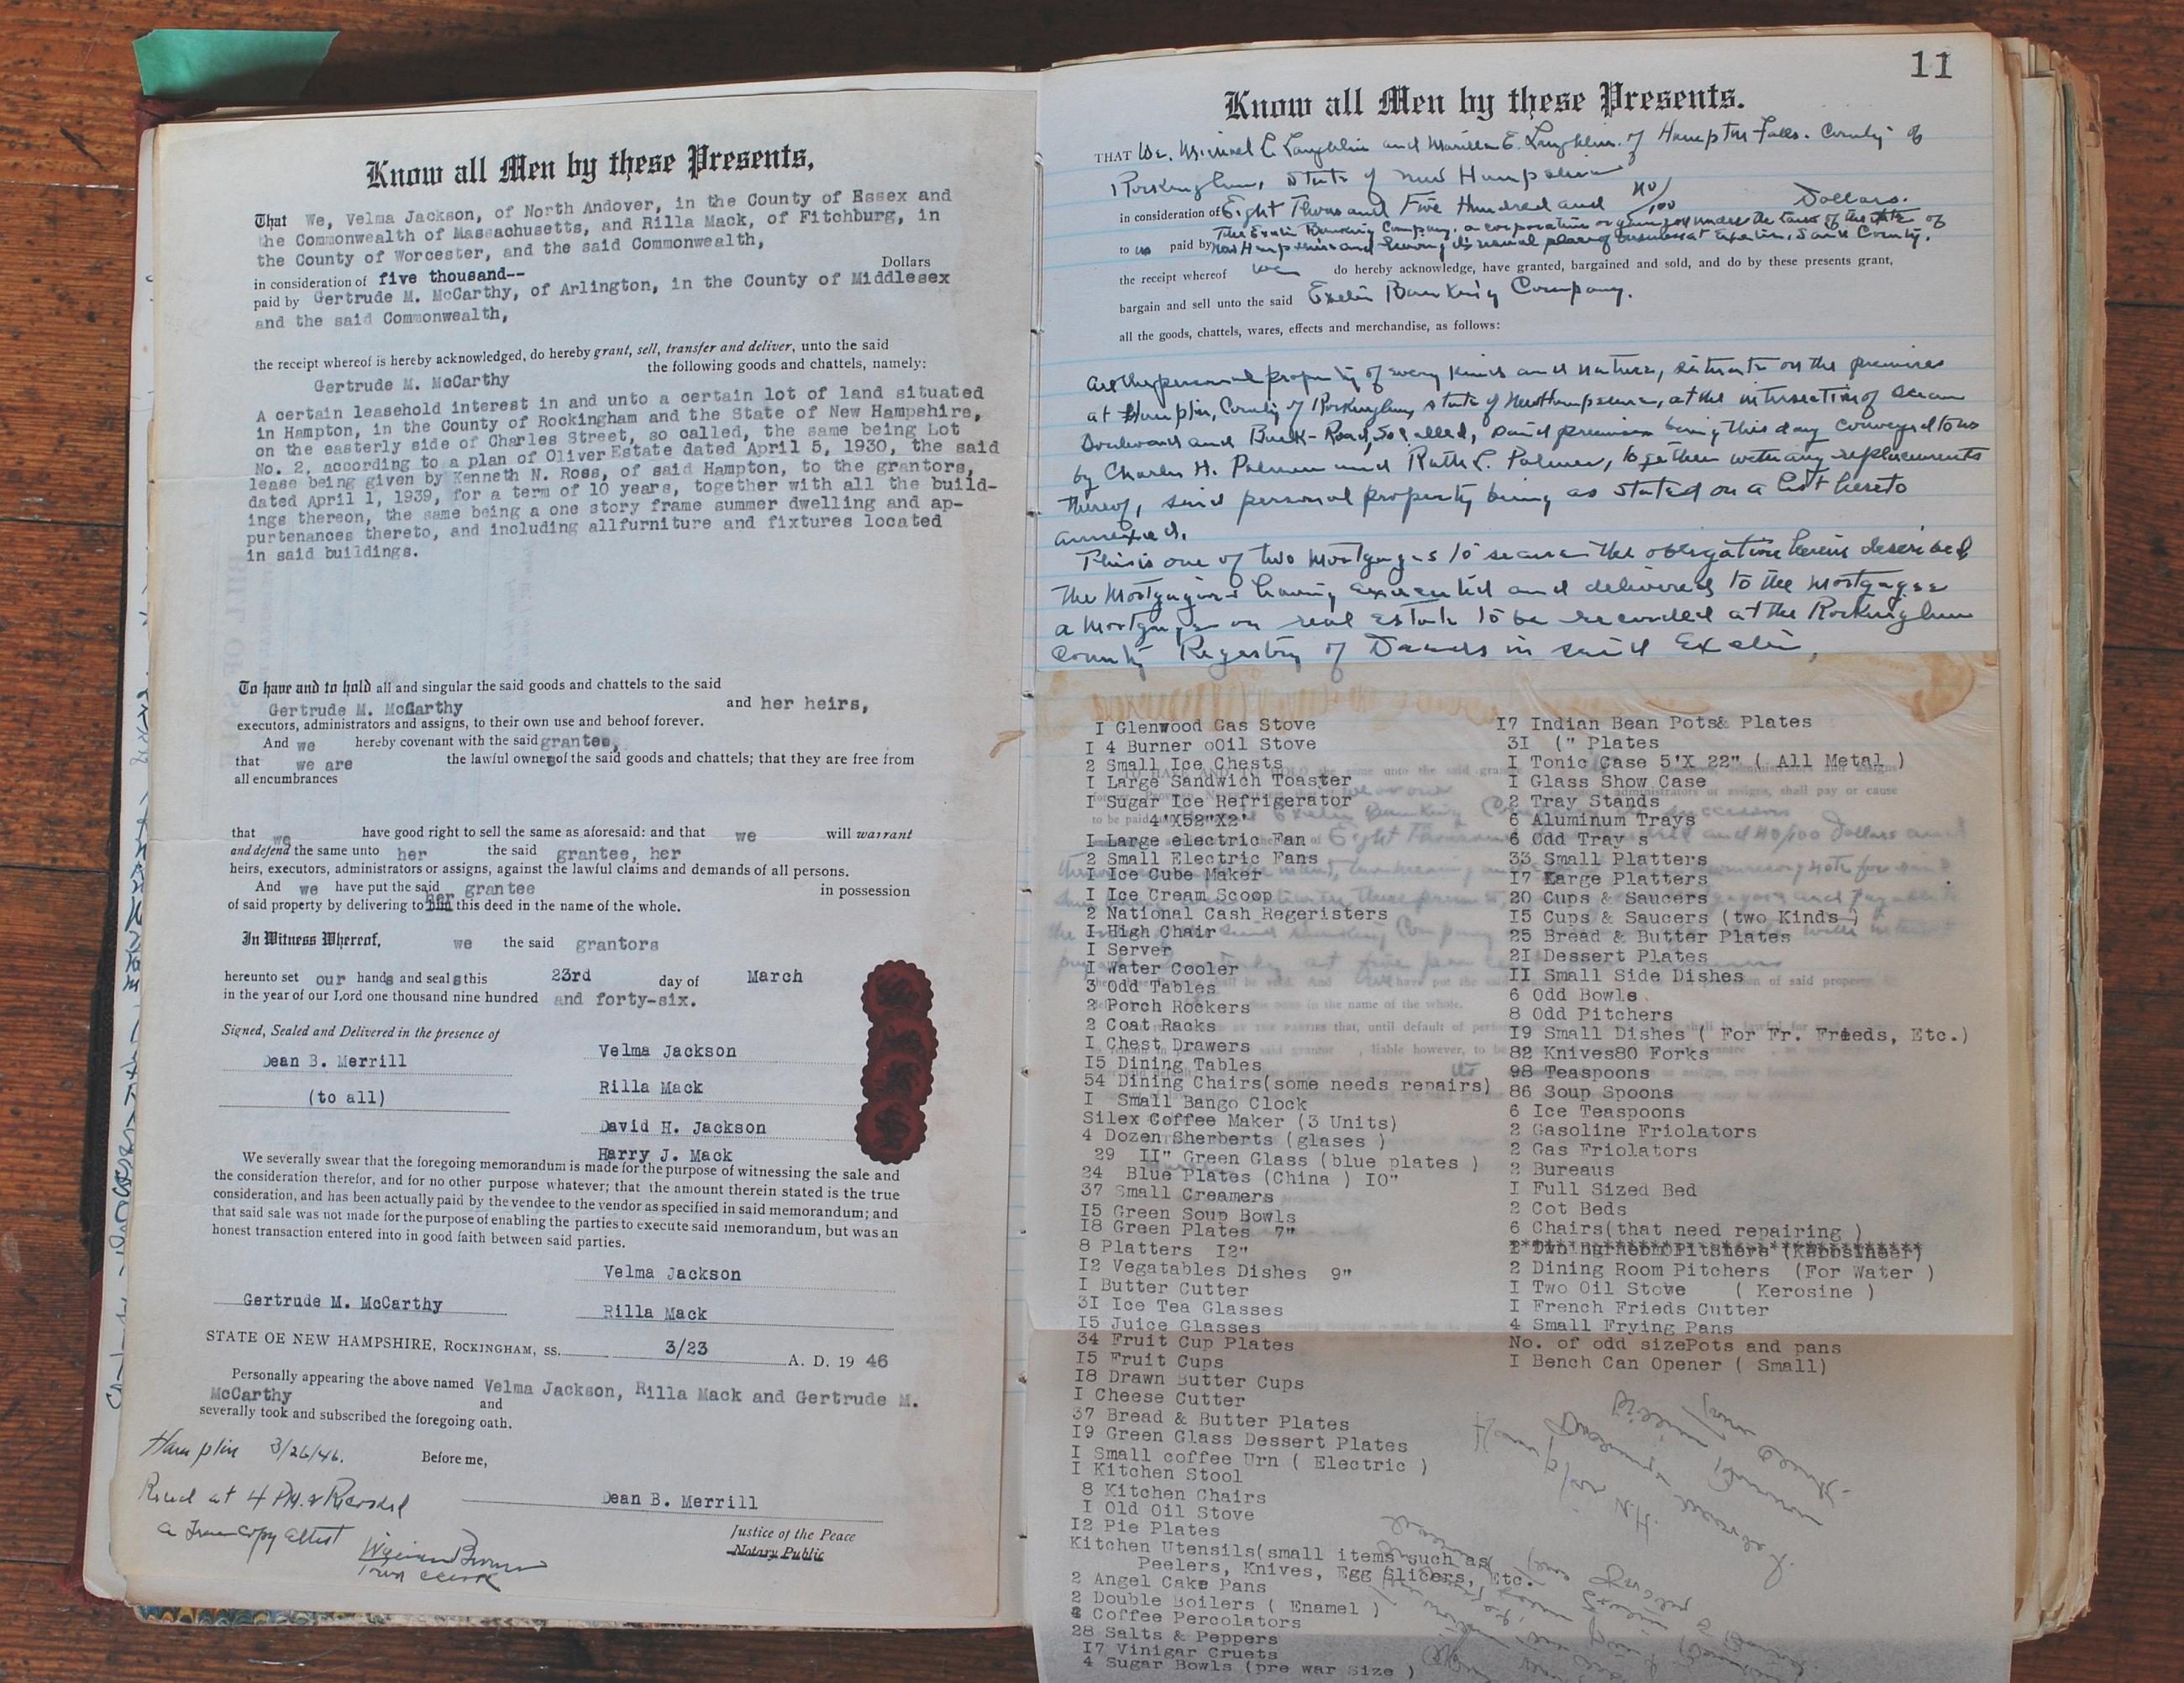 Know all Men by these Presents,
That We, Velma Jackson, of North Andover, in the County of Essex and
the Commonwealth of Massachusetts, and Rilla Mack, of Fitchburg, in
the County of Worcester, and the said Commonwealth,
in consideration of five thousand-- Dollars
paid by Gertrude M. McCarthy, of Arlington, in the County of Middlesex
and the said Commonwealth,
the receipt whereof is hereby acknowledged, do hereby grant, sell, transfer and deliver, unto the said
Gertrude M. McCarthy the following goods and chattels, namely:
A certain leasehold interest in and unto a certain lot of land situated
in Hampton, in the County of Rockingham and the State of New Hampshire,
on the easterly side of Charles Street, so called, the same being Lot
No. 2, according to a plan of Oliver Estate dated April 5, 1930, the said
lease being given by Kenneth N. Ross, of said Hampton, to the grantors,
dated April 1, 1939, for a term of 10 years, together with all the build-
ings thereon, the same being a one story frame summer dwelling and ap-
purtenances thereto, and including allfurniture and fixtures located
in said buildings.
To have and to hold all and singular the said goods and chattels to the said
Gertrude M. McCarthy and her heirs,
executors, administrators and assigns, to their own use and behoof forever.
And we hereby covenant with the said grantee,
that we are the lawful owners of the said goods and chattels; that they are free from
all encumbrances
that we have good right to sell the same as aforesaid: and that we will warrant
and defend the same unto her the said grantee, her
heirs, executors, administrators or assigns, against the lawful claims and demands of all persons.
And we have put the said grantee in possession
of said property by delivering to him her this deed in the name of the whole.
In Witness Whereof, we the said grantors
hereunto set our hands and seals this 23rd day of March
in the year of our Lord one thousand nine hundred and forty-six.
Signed, Sealed and Delivered in the presence of
Dean B. Merrill Velma Jackson
(to all) Rilla Mack
David H. Jackson
Harry J. Mack
We severally swear that the foregoing memorandum is made for the purpose of witnessing the sale and
the consideration therefor, and for no other purpose whatever; that the amount therein stated is the true
consideration, and has been actually paid by the vendee to the vendor as specified in said memorandum; and
that said sale was not made for the purpose of enabling the parties to execute said memorandum, but was an
honest transaction entered into in good faith between said parties.
Velma Jackson
Gertrude M. McCarthy Rilla Mack
STATE OE NEW HAMPSHIRE, ROCKINGHAM, ss. 3/23 A. D. 19 46
Personally appearing the above named Velma Jackson, Rilla Mack and Gertrude M.
McCarthy and
severally took and subscribed the foregoing oath.
Hampton 3/26/46. Before me,
Recd at 4 P.M. & Recorded
Dean B. Merrill
a True copy attest
Justice of the Peace
Notary Public
William Brown
Town Clerk
11
Know all Men by these Presents.
THAT We, Michael E. Laughlin and Marilla E. Laughlin of Hampton Falls, County of
Rockingham, State of New Hampshire
in consideration of Eight Thousand Five Hundred and no/100 Dollars.
to us paid by The Exeter Banking Company, a corporation organized under the laws of the state of
New Hampshire and having its usual place of business at Exeter, Said County,
the receipt whereof we do hereby acknowledge, have granted, bargained and sold, and do by these presents grant,
bargain and sell unto the said Exeter Banking Company.
all the goods, chattels, wares, effects and merchandise, as follows:
all the personal property of every kind and nature, situate on the premises
at Hampton, County of Rockingham, state of New Hampshire, at the intersection of Ocean
Boulevard and Road, So called, said premises being this day conveyed to us
by Charles H. Palmer and Ruth L. Palmer, together with any replacements
thereof, said personal property being as stated on a list hereto
annexed.
This is one of two mortgages to secure the obligation herein described
the mortgagors having executed and delivered to the mortgagee
a mortgage on real estate to be recorded at the Rockingham
County Registry of Deeds in said Exeter,
I Glenwood Gas Stove
I 4 Burner oOil Stove
2 Small Ice Chests
I Large Sandwich Toaster
I Sugar Ice Refrigerator
4'X52"X2'
I Large electric Fan
2 Small Electric Fans
I Ice Cube Maker
I Ice Cream Scoop
2 National Cash Regeristers
I High Chair
I Server
I Water Cooler
3 Odd Tables
2 Porch Rockers
2 Coat Racks
I Chest Drawers
I5 Dining Tables
54 Dining Chairs(some needs repairs)
I Small Bango Clock
Silex Coffee Maker (3 Units)
4 Dozen Sherberts (glases )
29 II" Green Glass (blue plates )
24 Blue Plates (China ) IO"
37 Small Creamers
I5 Green Soup Bowls
I8 Green Plates 7"
8 Platters I2"
I2 Vegatables Dishes 9"
I Butter Cutter
3I Ice Tea Glasses
I5 Juice Glasses
34 Fruit Cup Plates
I5 Fruit Cups
I8 Drawn Butter Cups
I Cheese Cutter
37 Bread & Butter Plates
I9 Green Glass Dessert Plates
I Small coffee Urn ( Electric )
I Kitchen Stool
8 Kitchen Chairs
I Old Oil Stove
I2 Pie Plates
Kitchen Utensils(small items such as
Peelers, Knives, Egg Slicers, Etc.
2 Angel Cake Pans
2 Double Boilers ( Enamel )
Coffee Percolators
28 Salts & Peppers
I7 Vinigar Cruets
4 Sugar Bowls (pre war Size )
I7 Indian Bean Pots& Plates
3I (" Plates
I Tonic Case 5'X 22" ( All Metal )
I Glass Show Case
2 Tray Stands
6 Aluminum Trays
6 Odd Tray s
33 Small Platters
I7 Large Platters
20 Cups & Saucers
I5 Cups & Saucers (two Kinds )
25 Bread & Butter Plates
2I Dessert Plates
II Small Side Dishes
6 Odd Bowls
8 Odd Pitchers
I9 Small Dishes ( For Fr. Frieds, Etc.)
82 Knives80 Forks
98 Teaspoons
86 Soup Spoons
6 Ice Teaspoons
2 Gasoline Friolators
2 Gas Friolators
2 Bureaus
I Full Sized Bed
2 Cot Beds
6 Chairs(that need repairing )
2 Dining Room Pitchers (For Water )
I Two Oil Stove ( Kerosine )
I French Frieds Cutter
4 Small Frying Pans
No. of odd sizePots and pans
I Bench Can Opener ( Small)